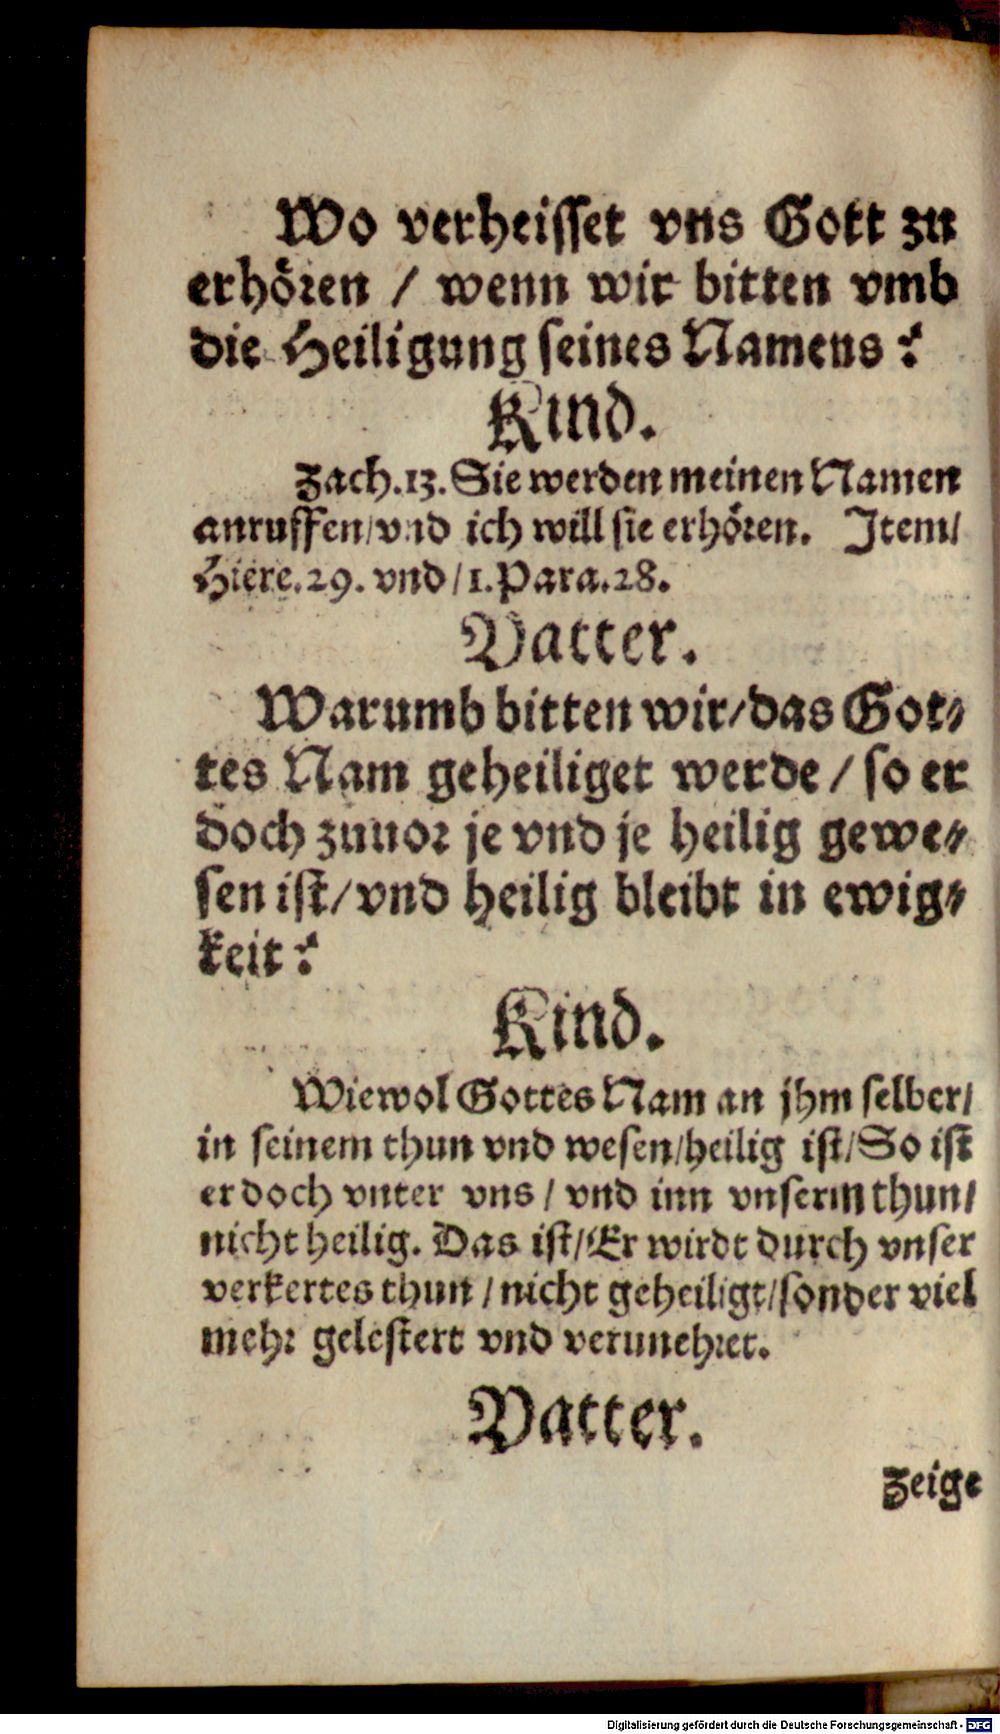 Wo verheisset vns Gott zu
erhören / wenn wir bitten vmb
die Heiligung seines Namens?
Kind.
Zach.13. Sie werden meinen Namen
anruffen/vnd ich will sie erhören. Item/
Hiere.29. vnd/1.Para.28.
Vatter.
Warumb bitten wir/das Got⸗
tes Nam geheiliget werde / so er
doch zuuor je vnd je heilig gewe⸗
sen ist/vnd heilig bleibt in ewig⸗
keit?
Kind.
Wiewol Gottes Nam an jhm selber/
in seinem thun vnd wesen/heilig ist/So ist
er doch vnter vns / vnd inn vnserm thun/
nicht heilig. Das ist/Er wirdt durch vnser
verkertes thun / nicht geheiligt/sonder viel
mehr gelestert vnd verunehret.
Vatter.
Zeige
Digitalisierung gefördert durch die Deutsche Forschungsgemeinschaft - DFG